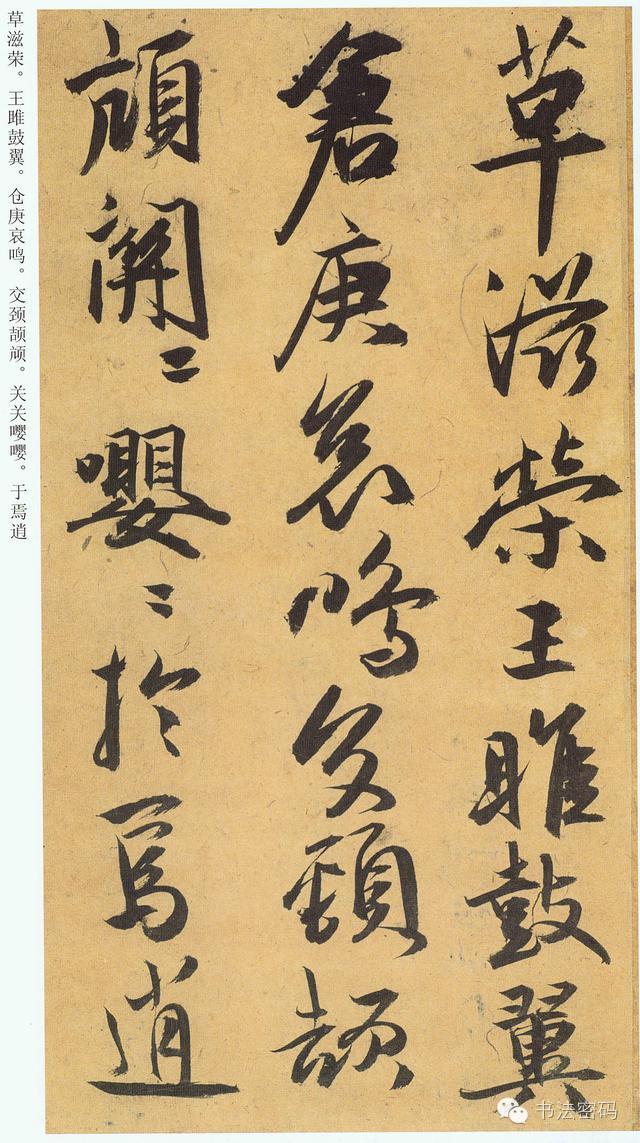 草滋榮王雎鼓翼
倉庚哀鳴交頸頡
頏關〻嚶〻於焉逍
草滋荣。王雎鼓翼。仓庚哀鸣。交颈颉颃。关关嘤嘤。于焉逍
书法密码